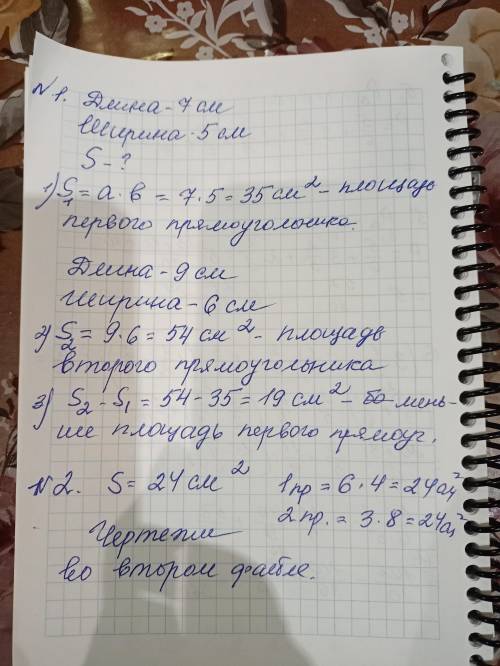 №1. Длина - 7 см
Ширина - 5 см
S - ?
1) S₁ = а · в = 7 · 5 = 35 см² - площадь
первого прямоугольника.
Длина - 9 см
Ширина - 6 см
2) S₂ = 9 · 6 = 54 см² - площадь
второго прямоугольника
3) S₂ - S₁ = 54 - 35 = 19 см² - мень-
ше площадь первого прямоуг.
№2. S = 24 см² 1 пр = 6 · 4 = 24 см²
2 пр. = 3 · 8 = 24 см²
Чертежи
во втором файле.